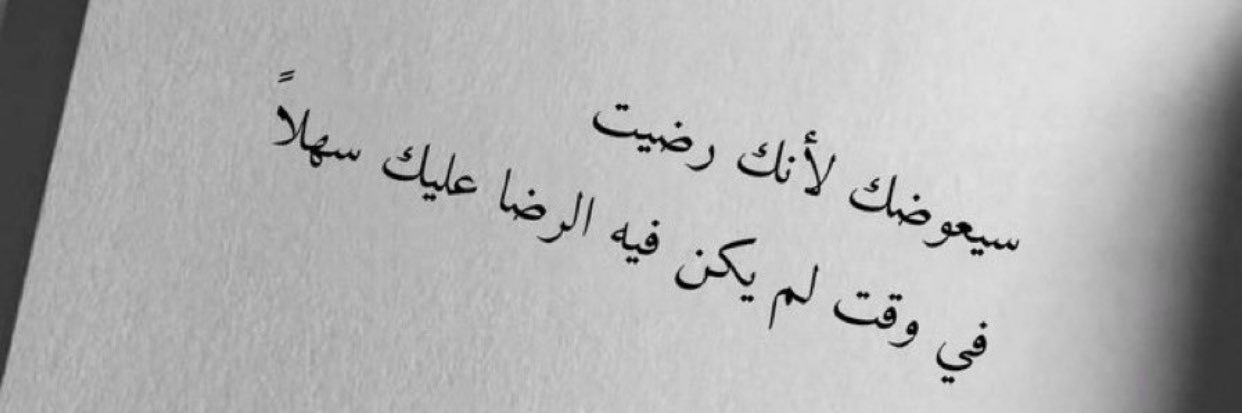 سيعوضك لأنك رضيت
في وقت لم يكن فيه الرضا عليك سهلاً